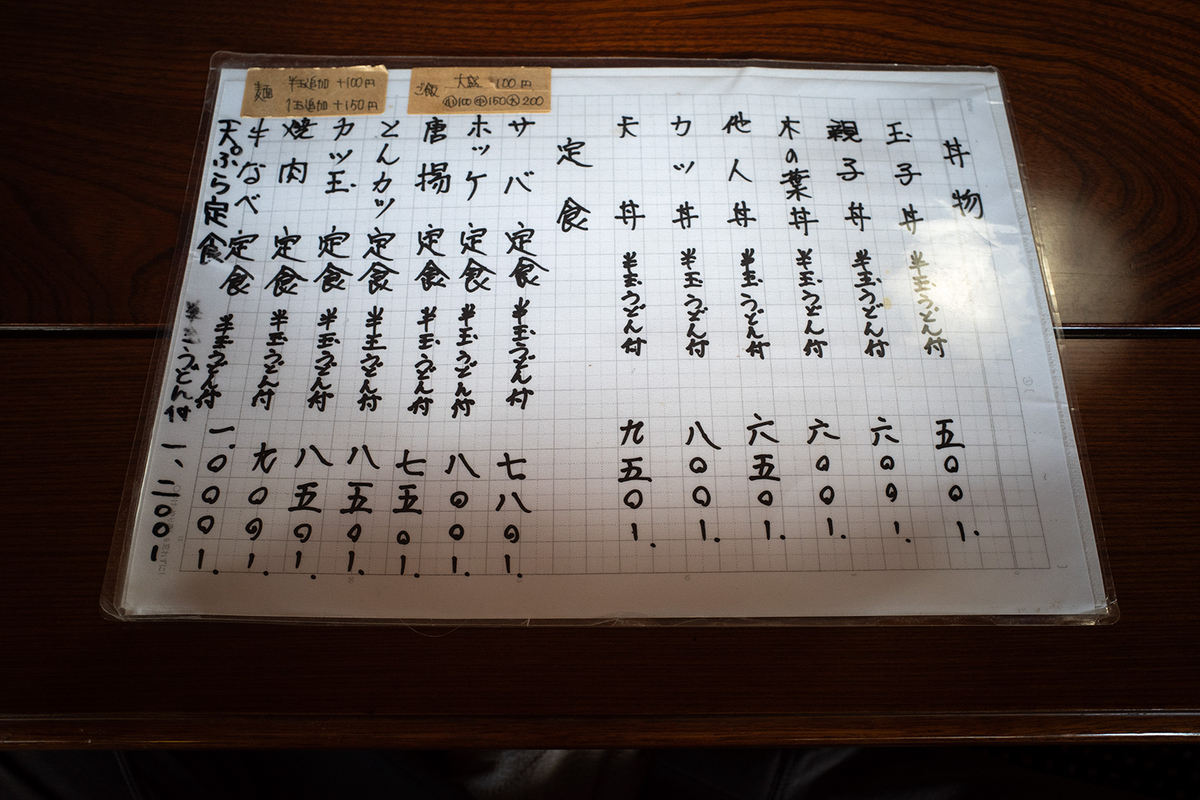 丼物
玉子丼 半玉うどん付 五〇〇1.
親子丼 半玉うどん付 六〇〇1.
木の葉丼 半玉うどん付 六〇〇1.
他人丼 半玉うどん付 六五〇1.
カツ丼 半玉うどん付 八〇〇1.
天丼 半玉うどん付 九五〇1.
定食
サバ定食 半玉うどん付 七八〇1.
ホッケ定食 半玉うどん付 八〇〇1.
唐揚定食 半玉うどん付 七五〇1.
とんカツ定食 半玉うどん付 八五〇1.
カツ玉定食 半玉うどん付 八五〇1.
焼肉定食 半玉うどん付 九〇〇1.
牛なべ定食 半玉うどん付 一、〇〇〇1.
天ぷら定食 半玉うどん付 一、二〇〇1
ご飯
大盛 100円
小100中150大200
麺
半玉追加 +100円
1玉追加 +150円